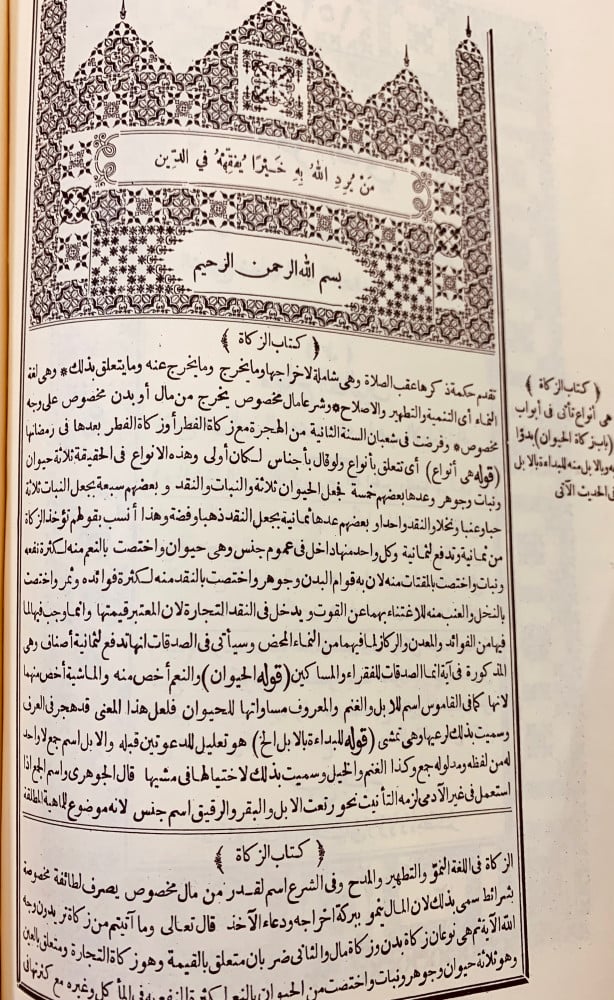 مَنْ يُرِدِ اللهُ بِهِ خَيْرًا يُفَقِّهْهُ فِي الدِّينِ
بسم الله الرحمن الرحيم
﴿ كتاب الزكاة ﴾
تقدم حكمة ذكرها عقب الصلاة وهى شاملة لاخراجها وما يخرج وما يخرج عنه وما يتعلق بذلك * وهى لغة
النماء أى التنمية والتطهير والاصلاح * وشرعا مال مخصوص يخرج من مال أو بدن مخصوص على وجه
مخصوص * وفرضت فى شعبان السنة الثانية من الهجرة مع زكاة الفطر أو زكاة الفطر بعدها فى رمضانها
(قوله هى أنواع) أى تتعلق بأنواع ولو قال بأجناس لكان أولى وهذه الانواع فى الحقيقة ثلاثة حيوان
ونبات وجوهر وعدها بعضهم خمسة فجعل الحيوان ثلاثة والنبات والنقد وبعضهم سبعة بجعل النبات ثلاثة
حبا وعنبا ونخلا والنقد واحدا وبعضهم عدها ثمانية بجعل النقد ذهبا وفضة وهذا أنسب بقولهم تؤخذ الزكاة
من ثمانية وتدفع لثمانية وكل واحد منها داخل فى عموم جنس وهى حيوان واختصت بالنعم منه لكثرة نفعه
ونبات واختصت بالمقتات منه لان به قوام البدن وجوهر واختصت بالنقد منه لكثرة فوائده وثمر واختصت
بالنخل والعنب منه للاغتناء بهما عن القوت ويدخل فى النقد التجارة لان المعتبر قيمتها وانما وجب فيها لما
فيها من الفوائد والمعدن والركاز لما فيهما من النماء المحض وسيأتى فى الصدقات انها تدفع لثمانية أصناف وهى
المذكورة فى آية انما الصدقات للفقراء والمساكين (قوله الحيوان) والنعم أخص منه والماشية أخص منهما
لانها كما فى القاموس اسم للابل والغنم والمعروف مساواتها للحيوان فلعل هذا المعنى قد هجر فى العرف
وسميت بذلك لرعيها وهى تمشى (قوله للبداءة بالابل الخ) هو تعليل للدعوتين قبله والابل اسم جمع لا واحد
له من لفظه ومدلوله جمع وكذا الغنم والخيل وسميت بذلك لاختيالها فى مشيها قال الجوهرى واسم الجمع اذا
استعمل فى غير الآدمى لزمه التأنيث نحو رتعت الابل والبقر والرقيق اسم جنس لانه موضوع للماهية المطلقة
﴿ كتاب الزكاة ﴾
هى أنواع تأتى فى أبواب
(باب زكاة الحيوان) بدؤا
به وبالابل منه للبداءة بالابل
فى الحديث الآتى
﴿ كتاب الزكاة ﴾
الزكاة فى اللغة النمو والتطهير والمدح وفى الشرع اسم لقدر من مال مخصوص يصرف لطائفة مخصوصة
بشرائط سمى بذلك لان المال ينمو ببركة اخراجه ودعاء الآخذ قال تعالى وما آتيتم من زكاة تريدون وجه
الله الآية ثم هى نوعان زكاة بدن وزكاة مال والثانى ضربان متعلق بالقيمة وهو زكاة التجارة ومتعلق بالعين
وهو ثلاثة حيوان وجوهر ونبات واختصت من الحيوان بالنعم لكثرة النفع به فى المأكل وغيره مع كثرتها فى